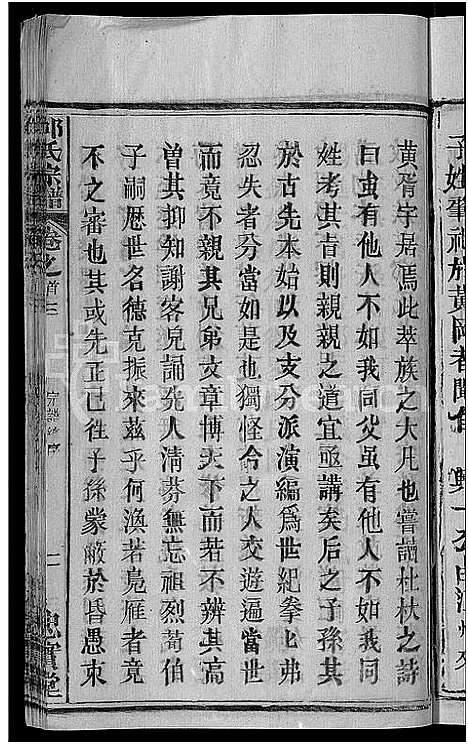 子姓肇祖於黃岡者聞
黃胥宇居焉此萃族之大凡也嘗誦杜杕之詩
曰虽有他人不如我同父虽有他人不如我同
姓考其旨則親親之道宜亟講矣后之子孫其
於古先本始以及支分派演編爲世紀拳匕弗
忍失者分當如是也獨怪今之人交遊遍當世
而竟不親其兄弟文章博天下而若不辨其高
曾其抑知謝客兒誦先人清芬無忘祖烈荀伯
子嗣歴世名德克振來茲乎何渙若鳧雁者竟
不之審也其或先正已徃子孫蒙蔽於昏愚束
氏宗譜
卷之首
忠實堂